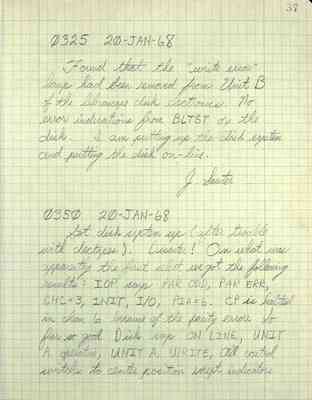 37
0325 20-JAN-68
Found that the "write error"
lamp had been removed from Unit B
of the librascope disk electronics. No
error indications from BLTBT or the
disk. I am putting up the disk system
and putting the disk on-line.
J. Sauter
0350 20-JAN-68
Got disk system up (after trouble
with dectapes). Curses! On what was
apparently the first we got the following
results: IOP says PAR ODD, PAR ERR,
CHC=3, INIT, I/O, PIA=6. CP is halted
in chan 6 because of the parity error. So
far so good. Disk says ON LINE, UNIT
A operation, UNIT A WRITE, All control
switches to center position except indicators